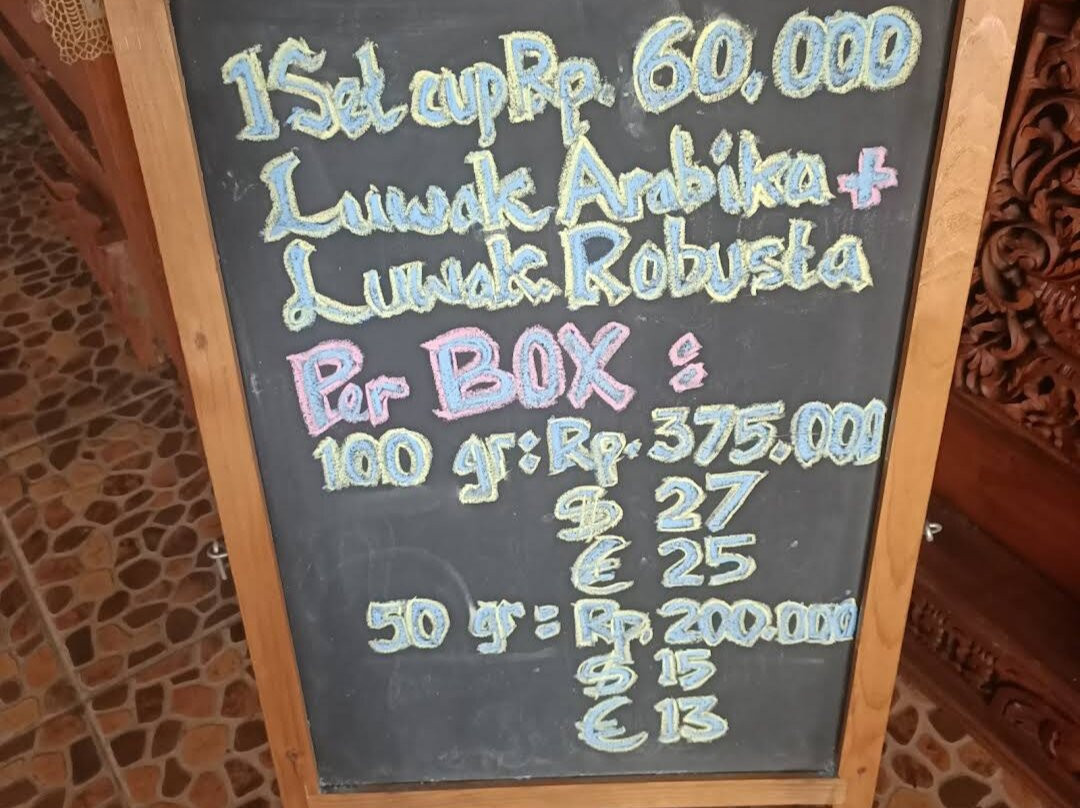 1 Set cup Rp. 60.000
Luwak Arabika +
Luwak Robusta
Per BOX :
100 gr : Rp. 375.000
$ 27
€ 25
50 gr : Rp. 200.000
$ 15
€ 13